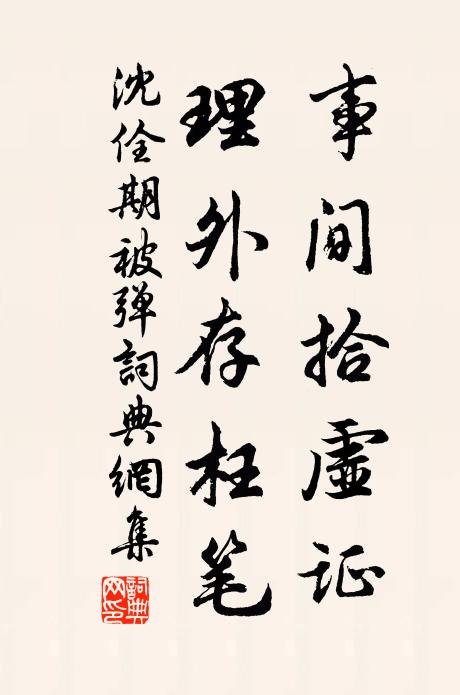 事间拾虚证
理外存枉笔
沈佺期被弹詞典網集
詞典网印